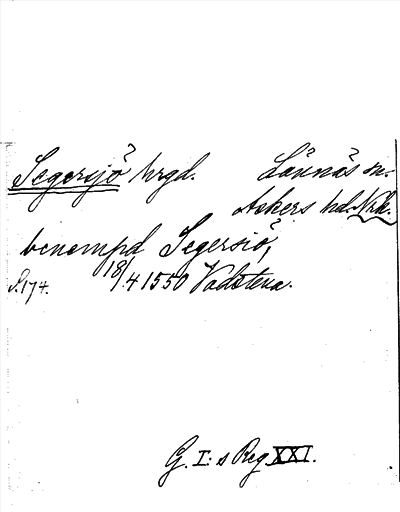 Segersjö hrgd. Lännäs sn.
Askers hd. Nrk.
benempd Segersiö,
S. 174. 18/4 1550 Vadstena.
G. I:s Reg XXI.